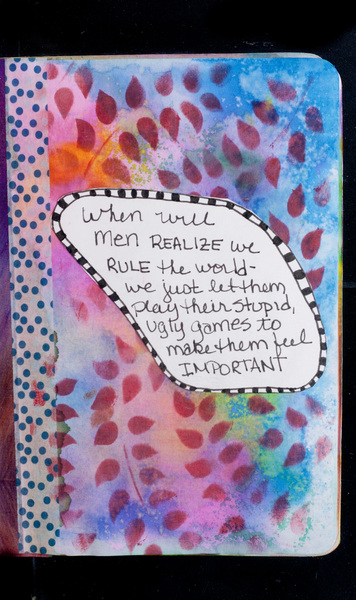 When will
men REALIZE we
RULE the world-
we just let them
play their stupid,
ugly games to
make them feel
IMPORTANT